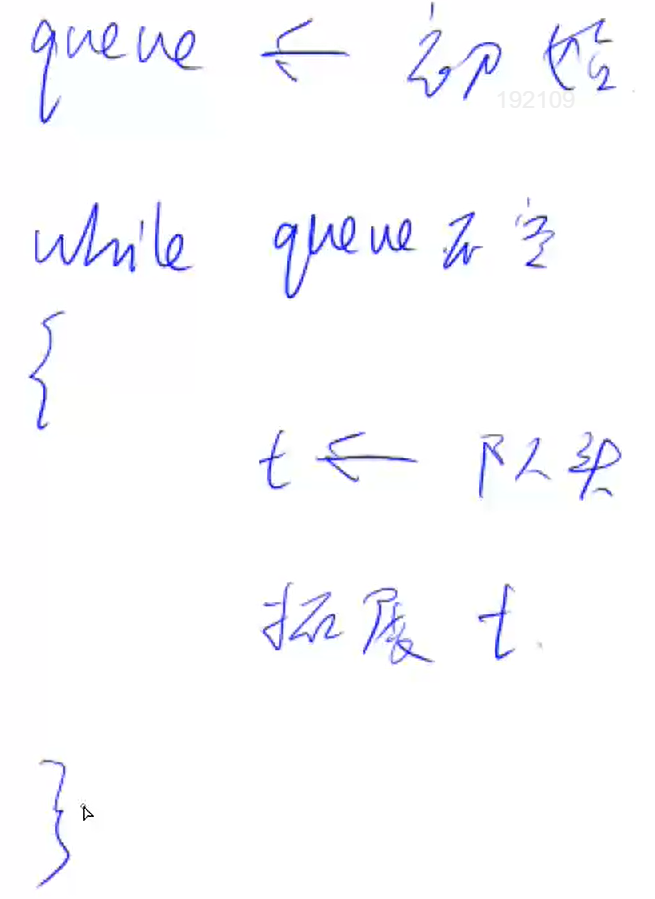 queue ← 初始
192109
while queue 不空
{
t ← 队头
拓展 t
}